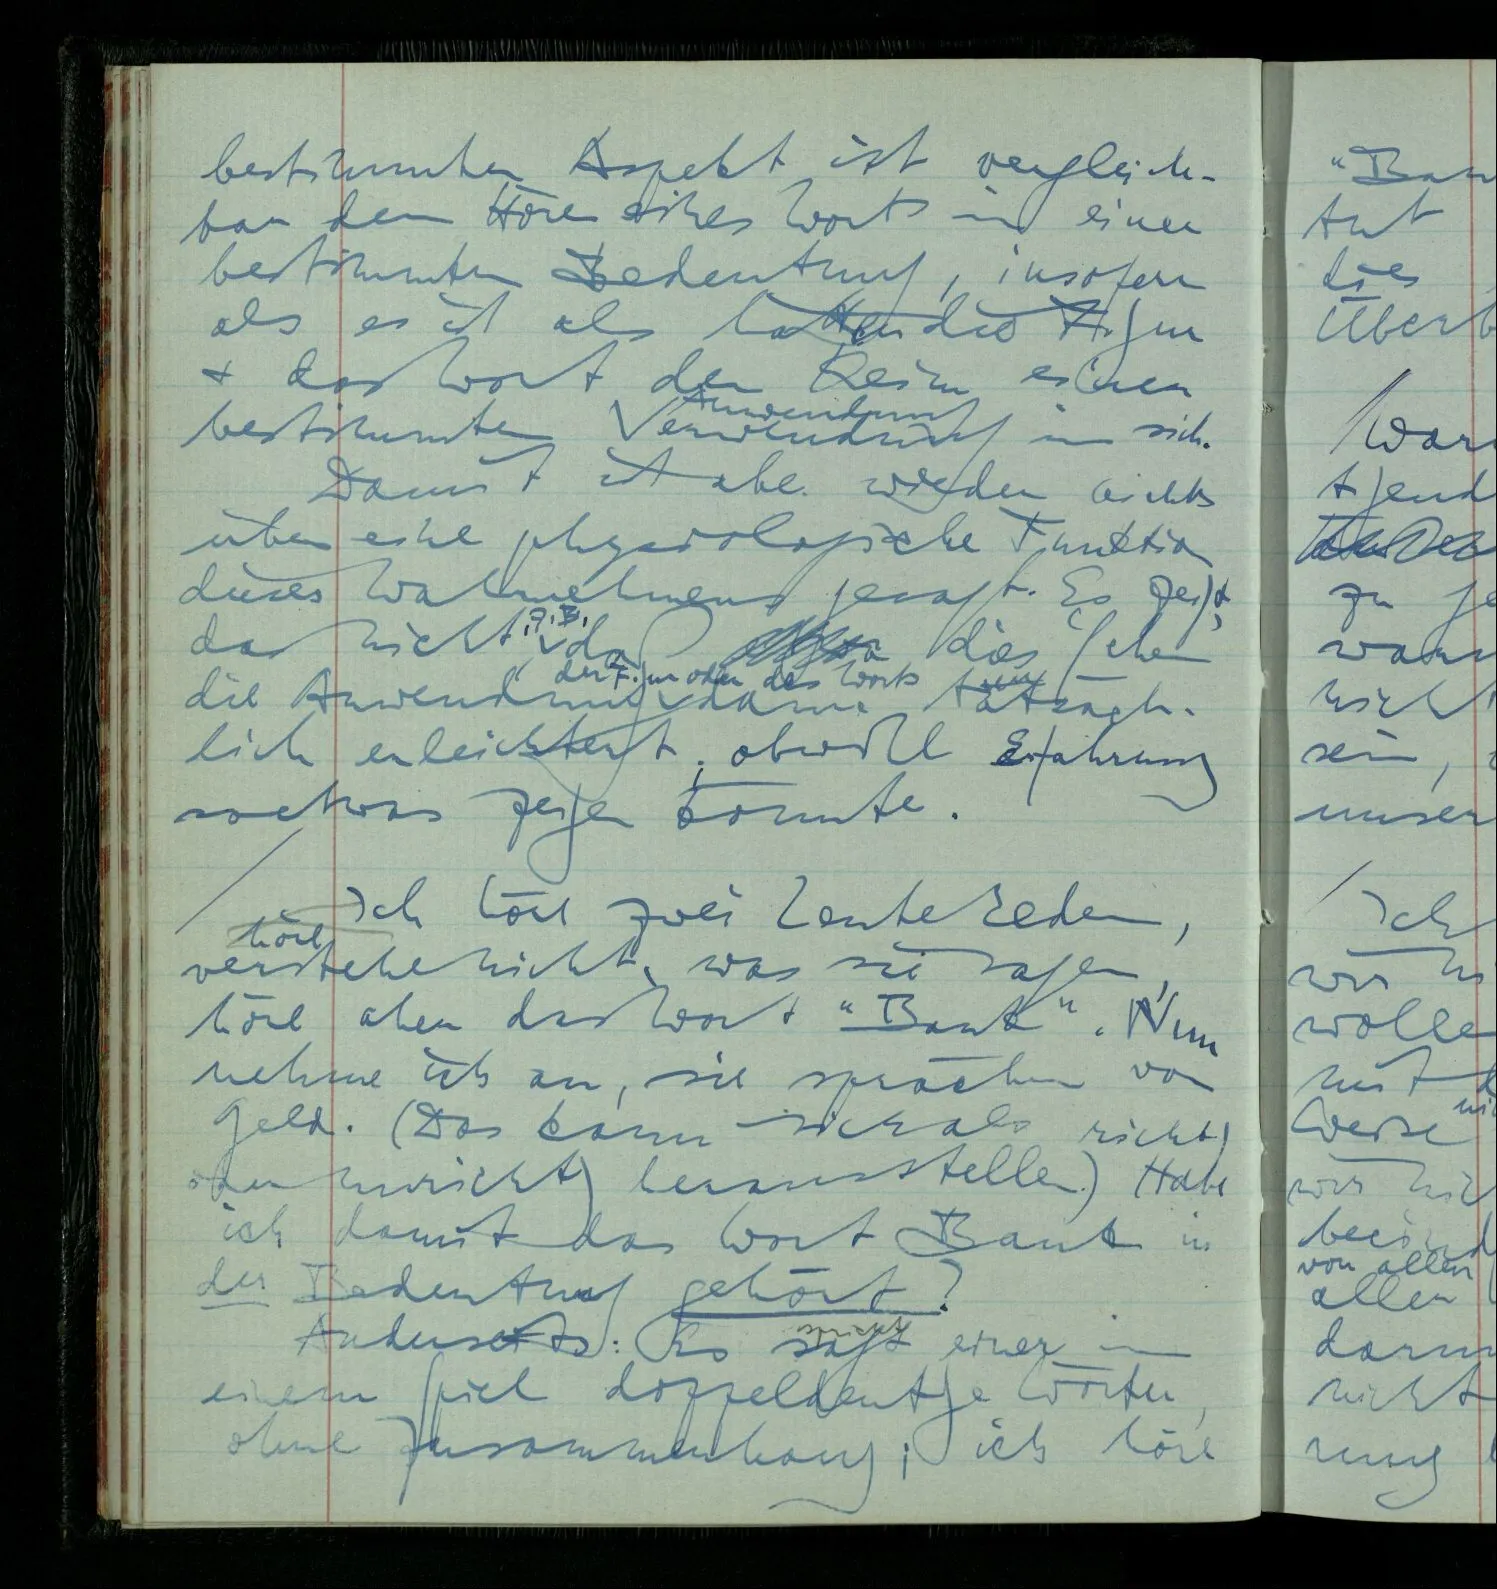 bestimmten Aspekt ist vergleich-
bar dem Hören eines Worts in einer
bestimmten Bedeutung, insofern
als es ist als hätten die Figur
& das Wort den Keim einer
Anwendung
bestimmten Verwendung in sich.
Damit ist aber wieder nichts
über eine physiologische Funktion
dieses Wahrnehmens gesagt. Es zeigt,
z.B.,
da nicht, daß dies Sehen
der Figur oder des Worts
die Anwendung dann tatsäch-
lich erleichtert; obwohl Erfahrung
so etwas zeigen könnte.
Ich höre zwei Leute reden,
höre
verstehe nicht, was sie sagen,
höre aber das Wort "Bank". Nun
nehme ich an, sie sprächen von
Geld. (Das kann sich als richtig
oder unrichtig herausstellen.) Habe
ich damit das Wort Bank in
der Bedeutung gehört?
spricht
Anderseits: Es sagt einer in
einem Spiel doppeldeutige Wörter,
ohne Zusammenhang; ich höre
"Ban
tut
dies
Überb
War
tgend
zu ge
wann
nicht
sein,
unser
Ich
wir ni
wolle
mit d
Weise
wir nich
von allen
allen
darum
nicht
rung